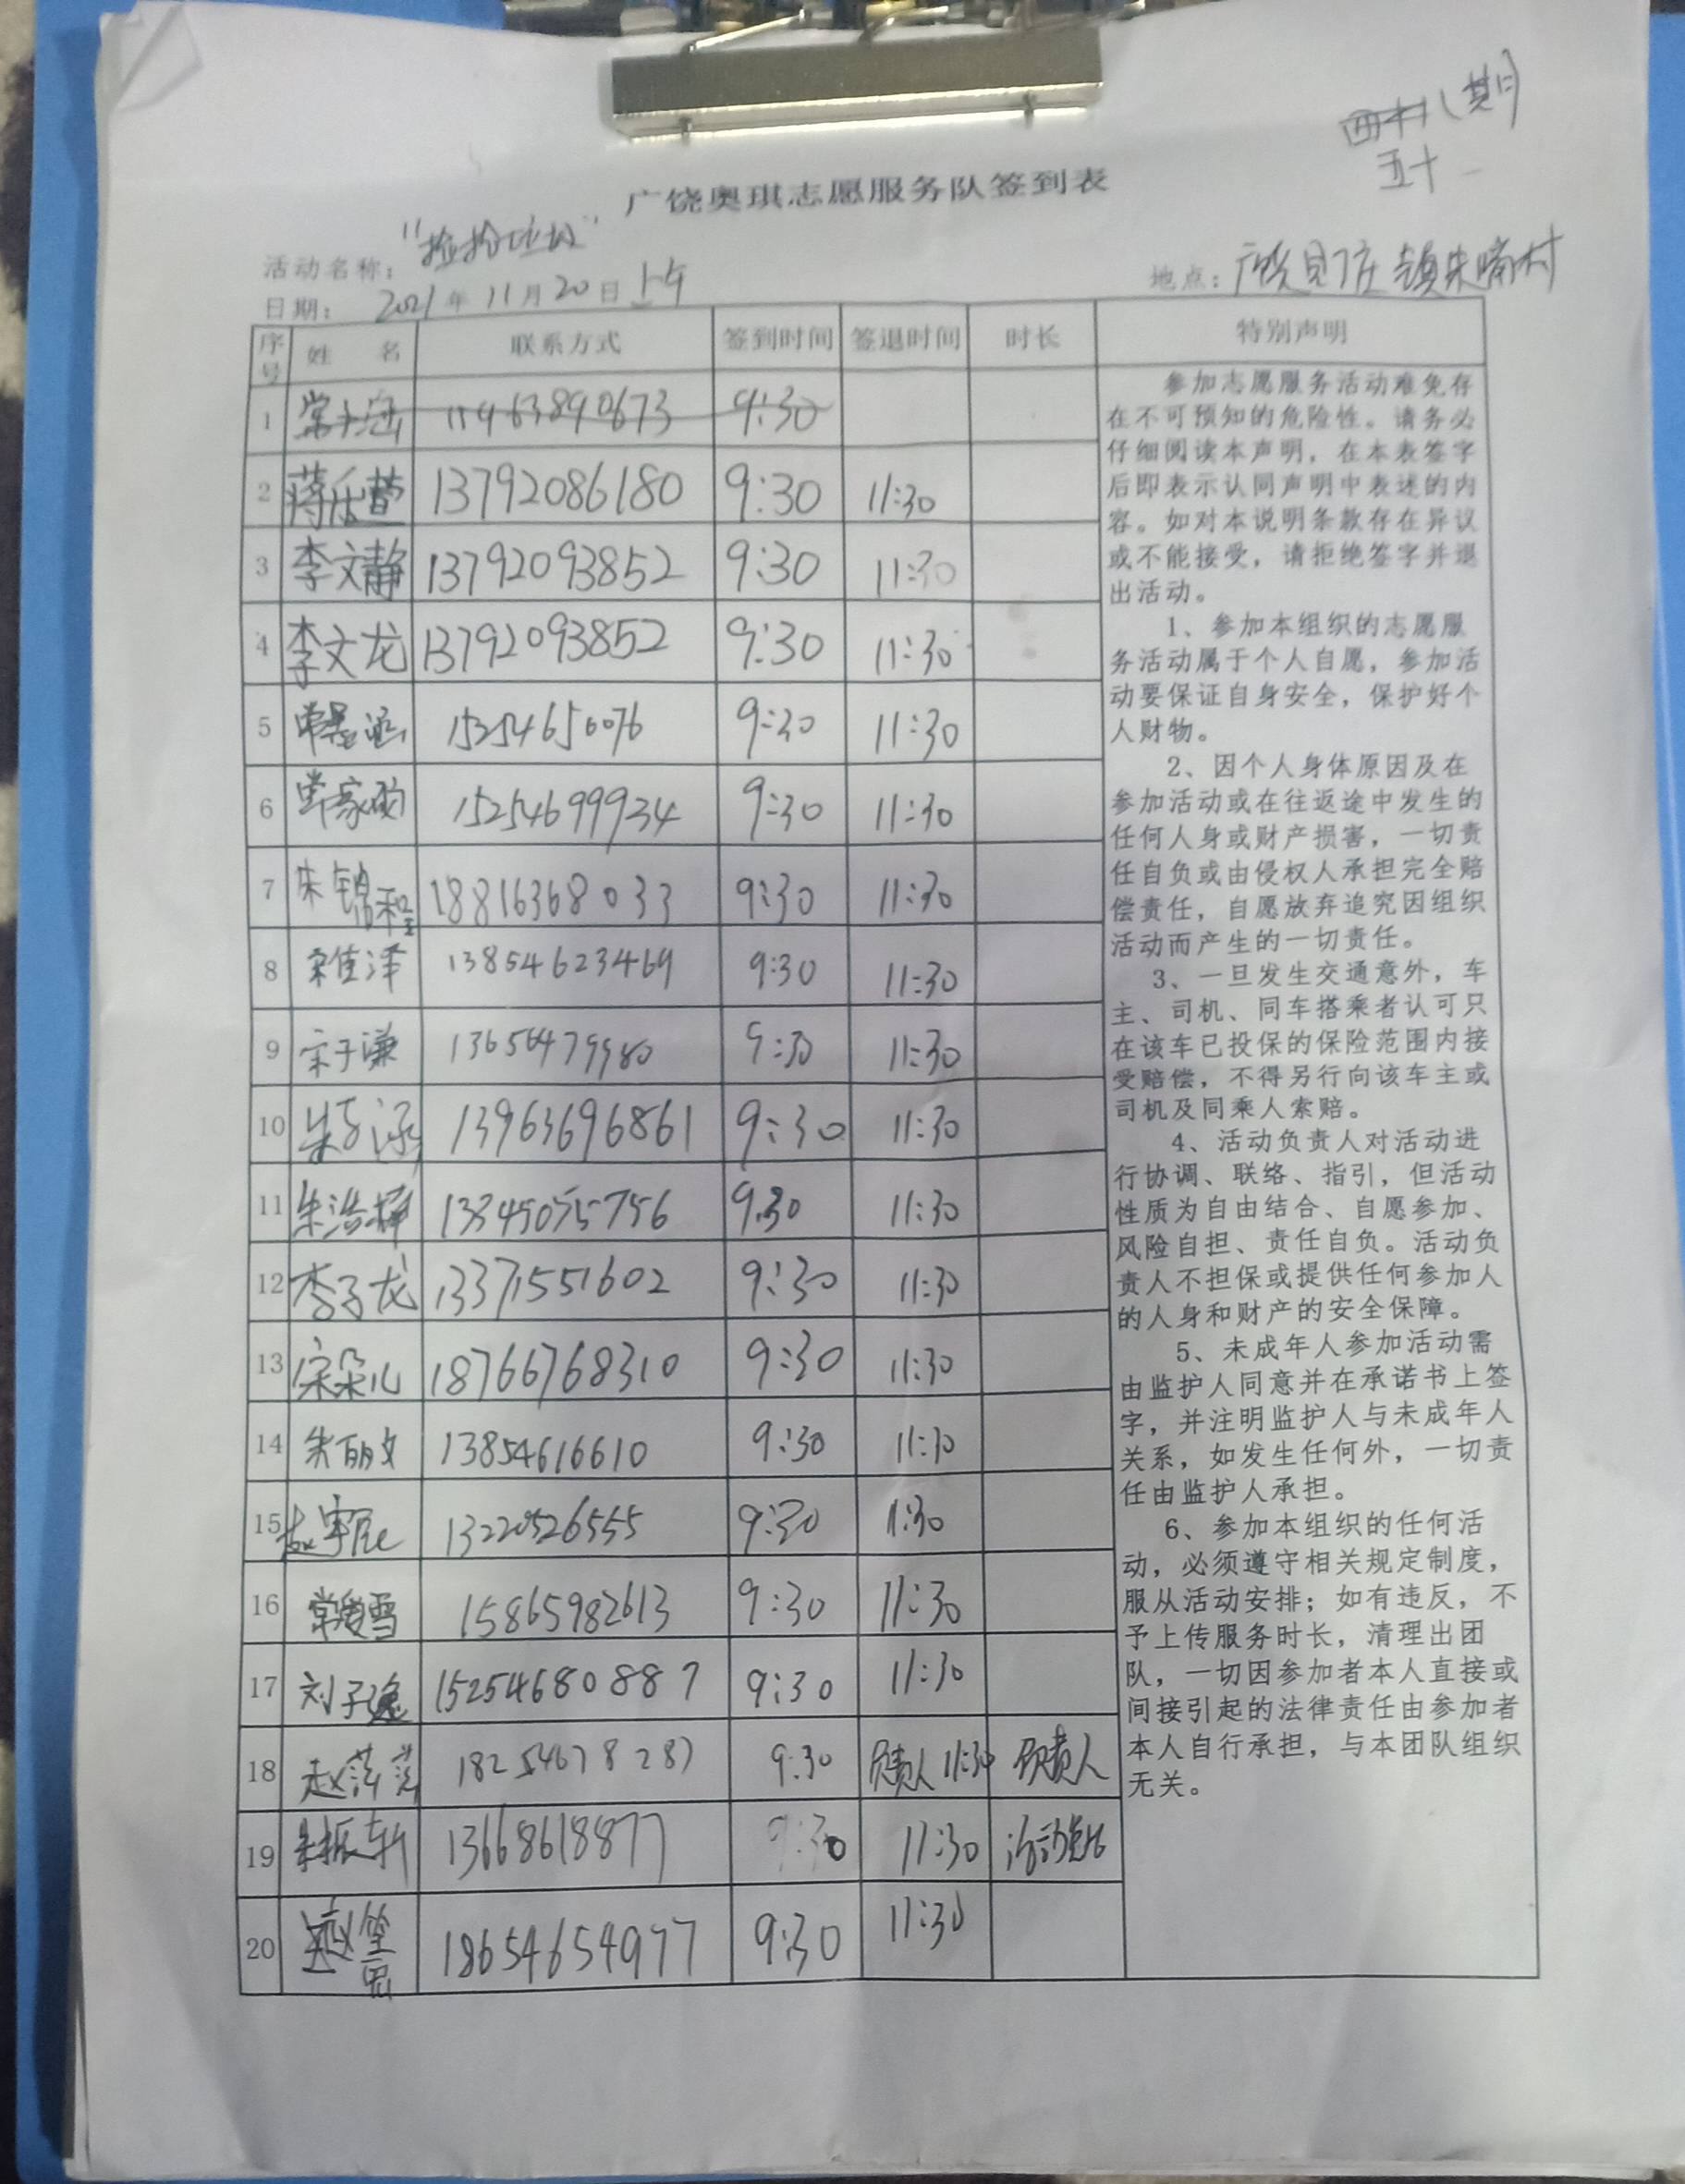 期
五十一
广饶奥琪志愿服务队签到表
活动名称：“捡拾垃圾”
日期： 2021年11月20日上午
地点：广饶县 镇朱 村
序号 姓 名 联系方式 签到时间 签退时间 时长 特别声明
1 9:30
2 蒋乐萱 13792086180 9:30 11:30
3 李文静 13792093852 9:30 11:30
4 李文龙 13792093852 9:30 11:30
5 15254656076 9:30 11:30
6 常家硕 15254699934 9:30 11:30
7 朱锦程 18816368033 9:30 11:30
8 佳泽 13854623469 9:30 11:30
9 宋子谦 13656479980 9:30 11:30
10 朱 涵 13963696861 9:30 11:30
11 朱浩 9:30 11:30
12 李子龙 13371551602 9:30 11:30
13 宋朵儿 18766768310 9:30 11:30
14 朱丽文 13854616610 9:30 11:30
15 赵宇辰 13220526555 9:30 11:30
16 常爱雪 15865982613 9:30 11:30
17 刘子逸 15254680887 9:30 11:30
18 赵萍萍 18254678287 9:30 负责人 11:30 负责人
19 朱振轩 13668618877 9:30 11:30 活动
20 赵 18654654977 9:30 11:30
参加志愿服务活动难免存
在不可预知的危险性。请务必
仔细阅读本声明，在本表签字
后即表示认同声明中表述的内
容。如对本说明条款存在异议
或不能接受，请拒绝签字并退
出活动。
1、参加本组织的志愿服
务活动属于个人自愿，参加活
动要保证自身安全，保护好个
人财物。
2、因个人身体原因及在
参加活动或在往返途中发生的
任何人身或财产损害，一切责
任自负或由侵权人承担完全赔
偿责任，自愿放弃追究因组织
活动而产生的一切责任。
3、一旦发生交通意外，车
主、司机、同车搭乘者认可只
在该车已投保的保险范围内接
受赔偿，不得另行向该车主或
司机及同乘人索赔。
4、活动负责人对活动进
行协调、联络、指引，但活动
性质为自由结合、自愿参加、
风险自担、责任自负。活动负
责人不担保或提供任何参加人
的人身和财产的安全保障。
5、未成年人参加活动需
由监护人同意并在承诺书上签
字，并注明监护人与未成年人
关系，如发生任何外，一切责
任由监护人承担。
6、参加本组织的任何活
动，必须遵守相关规定制度，
服从活动安排；如有违反，不
予上传服务时长，清理出团
队，一切因参加者本人直接或
间接引起的法律责任由参加者
本人自行承担，与本团队组织
无关。